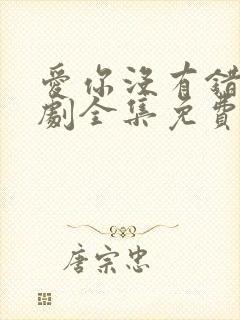 愛你沒有錯
劇全集免費
唐宗忠